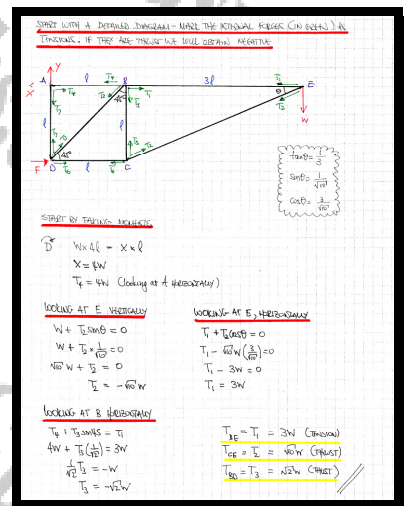 START WITH A DETAILED DIAGRAM - MARK THE INTERNAL FORCES (IN GREEN) AS
TENSIONS. IF THEY ARE THRUST WE WILL OBTAIN NEGATIVE
Y
A l T4 B 3l T1 E
X T4 T3 45° T1 θ T2
l l W
T3 T2
45°
F D l C
tanθ = 1/3
sinθ = 1/√10
cosθ = 3/√10
START BY TAKING MOMENTS
D W×4l = X×l
X = 4W
T4 = 4W (looking at A HORIZONTALLY)
LOOKING AT E VERTICALLY
W + T2 sinθ = 0
W + T2 × 1/√10 = 0
√10 W + T2 = 0
T2 = -√10 W
LOOKING AT E, HORIZONTALLY
T1 + T2 cosθ = 0
T1 - √10 W (3/√10) = 0
T1 - 3W = 0
T1 = 3W
LOOKING AT B HORIZONTALLY
T4 + T3 sin45 = T1
4W + T3 (1/√2) = 3W
1/√2 T3 = -W
T3 = -√2 W
TBE = T1 = 3W (TENSION)
TCE = T2 = √10 W (THRUST)
TBD = T3 = √2 W (THRUST)